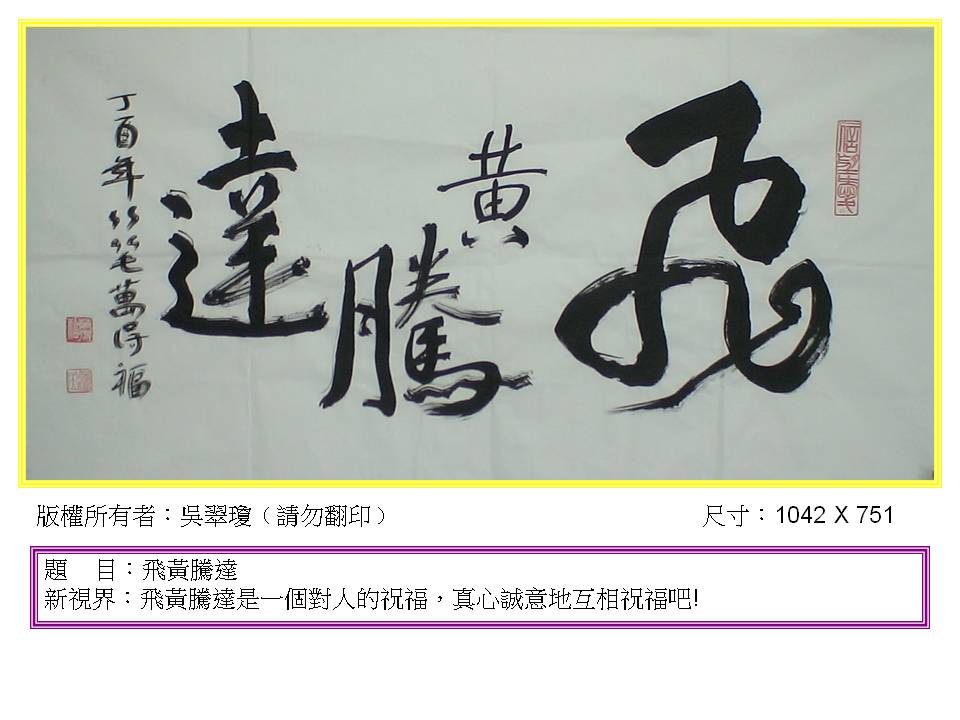 飛黃騰達
丁酉年竹筆萬得福
版權所有者：吳翠瓊（請勿翻印）
尺寸：1042 X 751
題　目：飛黃騰達
新視界：飛黃騰達是一個對人的祝福，真心誠意地互相祝福吧!